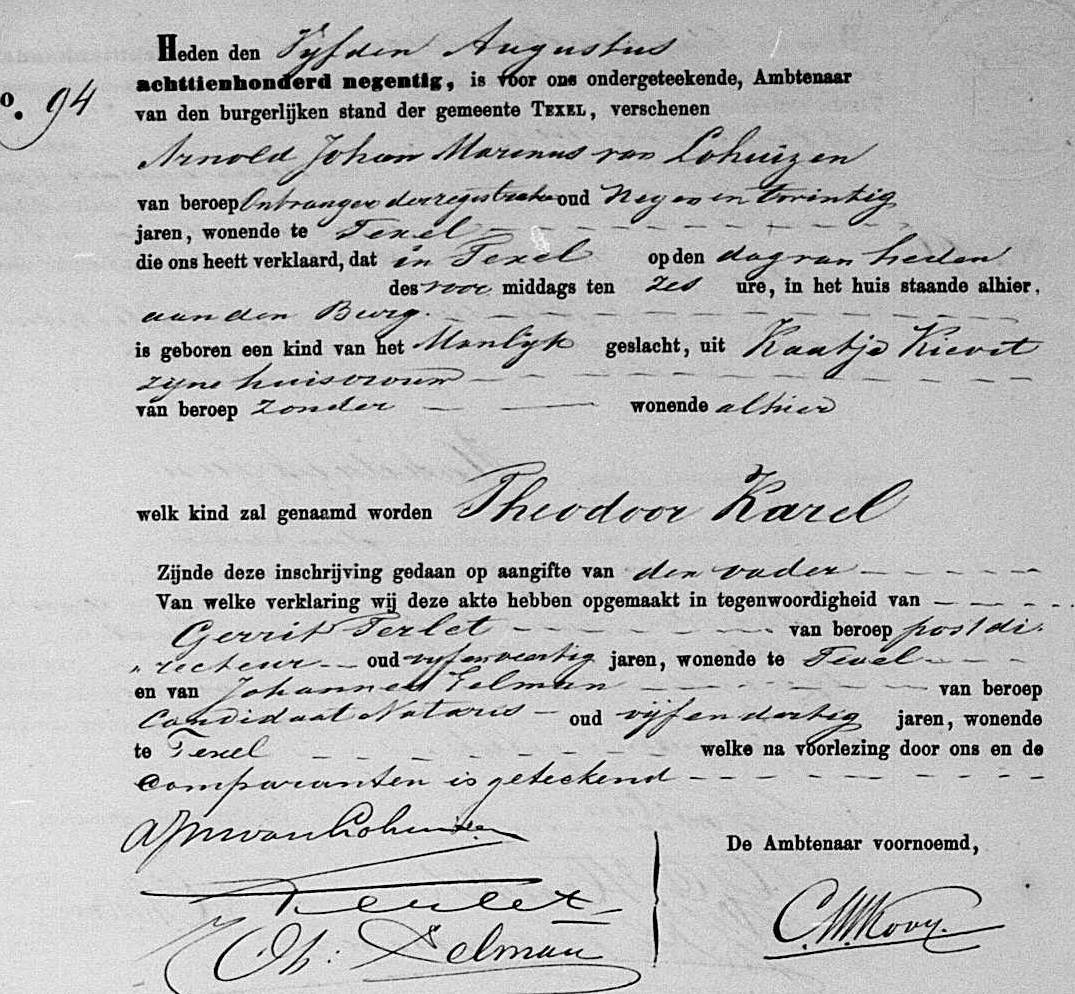 Heden den Vyfden Augustus
achttienhonderd negentig, is voor ons ondergeteekende, Ambtenaar
o. 94
van den burgerlijken stand der gemeente TEXEL, verschenen
Arnold Johan Marinus van Lohuizen
van beroep Ontvanger der registratie oud Negen en twintig
jaren, wonende te Texel
die ons heeft verklaard, dat in Texel op den dag van heden
des voor middags ten zes ure, in het huis staande alhier,
aan den Burg.
is geboren een kind van het Manlyk geslacht, uit Kaatje Kievit
zyne huisvrouw
van beroep Zonder wonende alhier
welk kind zal genaamd worden Theodoor Karel
Zijnde deze inschrijving gedaan op aangifte van den vader
Van welke verklaring wij deze akte hebben opgemaakt in tegenwoordigheid van
Gerrit Terlet van beroep postdi-
„recteur oud vyf en veertig jaren, wonende te Texel
en van Johannes Selman van beroep
Candidaat Notaris oud vijf en dertig jaren, wonende
te Texel welke na voorlezing door ons en de
Comparanten is geteekend
AJMvanLohuizen
De Ambtenaar voornoemd,
Terlet
Joh: Selman